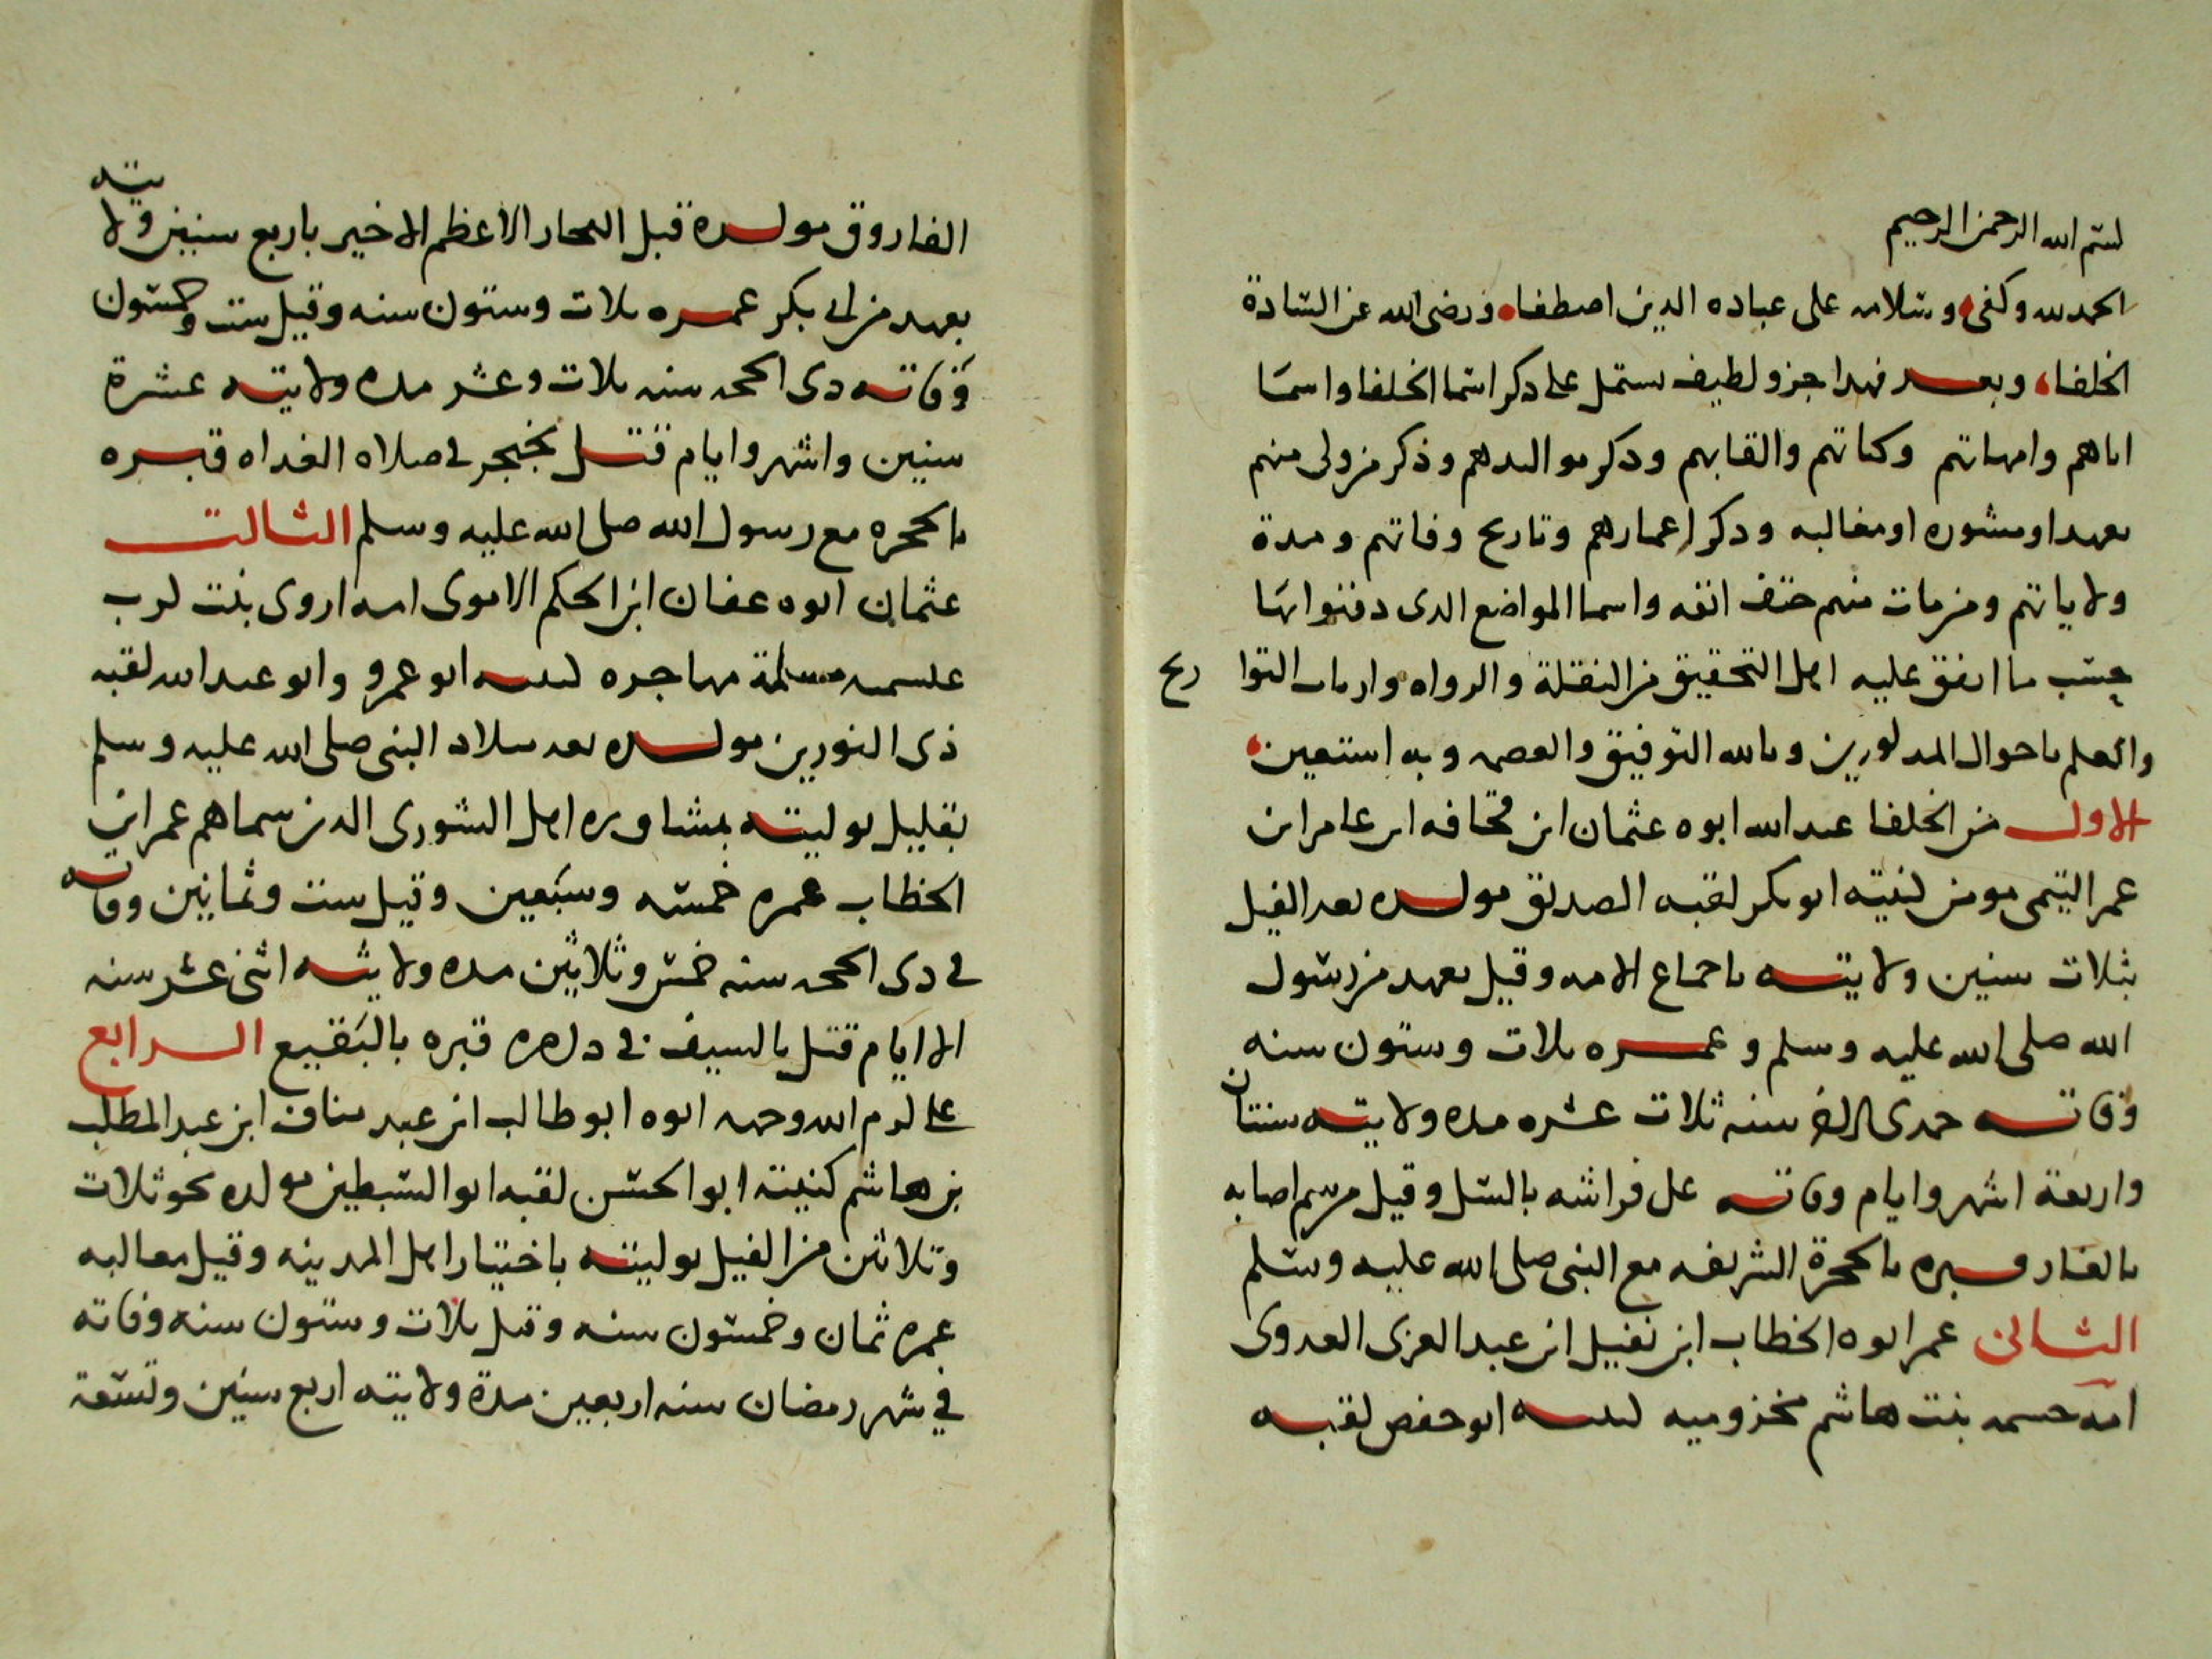 بسم الله الرحمن الرحيم
الحمد لله وكفى وسلام على عباده الدين اصطفاه ورضى الله عن السادة
الخلفاء وبعد فهدا جزو لطيف ستمل على دكر اسما الخلفا واسما
اباهم وامهاتهم وكناتهم والقابهم ودكر موالدهم وذكر من ولى منهم
بعهد او مشوره او مغالبه ودكر اعمارهم وتاريح وفاتهم ومدة
ولاياتهم ومن مات منهم حتف انفه واسما المواضع الدى دفنوا بها
بحسب ما اتفق عليه اهل التحقيق من النقلة والرواه وارباب التوا ريح
والعلم باحوال المدكورين وبالله التوفيق والعصمه وبه استعين
الاول من الخلفا عبد الله ابوه عثمان ابن قحافه ابن عامر ابن
عمر التيمى مومن كنيته ابو بكر لقبه الصديق مولده بعد الفيل
بثلات سنين ولايته باجماع الامه وقيل بعهد من رسول
الله صلى الله عليه وسلم وعمره ثلات وستون سنه
وفاته سنه ثلات عشره مده ولايته سنتان
واربعة اشهر وايام وفاته على فراشه بالسل وقيل من سم اصابه
بالغار قبره بالحجرة الشريفه مع النبى صلى الله عليه وسلم
الثانى عمر ابوه الخطاب ابن نفيل ابن عبد العزى العدوى
امه حسمه بنت هاشم مخزوميه كنيته ابو حفص لقبه
الفاروق مولده قبل الفجار الاعظم الاخير باربع سنين ولايته
بعهد من ابى بكر عمره ثلات وستون سنه وقيل ست وخمسون
وفاته دى الحجه سنه ثلات وعشر مده ولايته عشرة
سنين واشهر وايام قتل بخنجر فى صلاه الغداه قبره
بالحجره مع رسول الله صلى الله عليه وسلم الثالت
عثمان ابوه عفان ابن الحكم الاموى امه اروى بنت
مسلمة مهاجره كنيته ابو عمرو وابو عبد الله لقبه
ذى النورين مولده بعد ميلاد النبى صلى الله عليه وسلم
بقليل توليته بمشاوره اهل الشورى الدين سماهم عمر ابن
الخطاب عمره خمسه وسبعين وقيل ست وثمانين وفاته
فى دى الحجه سنه خمس وثلاثين مده ولايته اثنى عشر سنه
الا ايام قتل بالسيف فى داره قبره بالبقيع الرابع
على كرم الله وجهه ابوه ابو طالب ابن عبد مناف ابن عبد المطلب
بن هاشم كنيته ابو الحسن لقبه ابو السبطين مولده نحو ثلات
وثلاثين من الفيل توليته باختيار اهل المدينه وقيل مغالبه
عمره ثمان وخمسون سنه وقيل ثلات وستون سنه وفاته
في شهر رمضان سنه اربعين مدة ولايته اربع سنين وتسعة